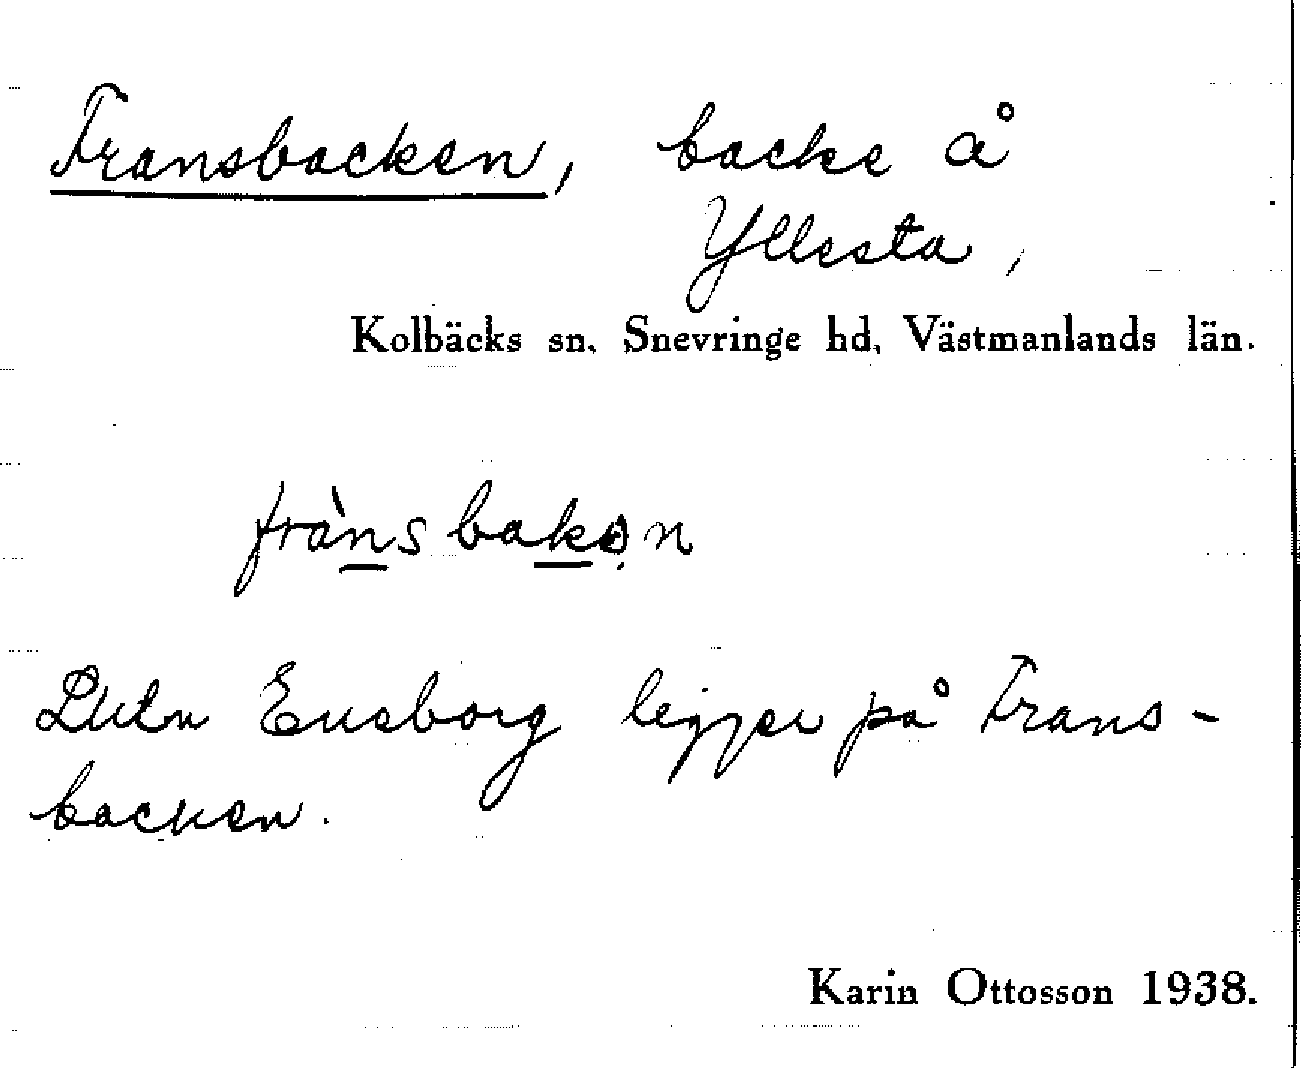 Transbacken, backe å
Yllesta,
Kolbäcks sn. Snevringe hd, Västmanlands län.
tràns bakən
Luten Eneborg ligger på Trans-
backen.
Karin Ottosson 1938.